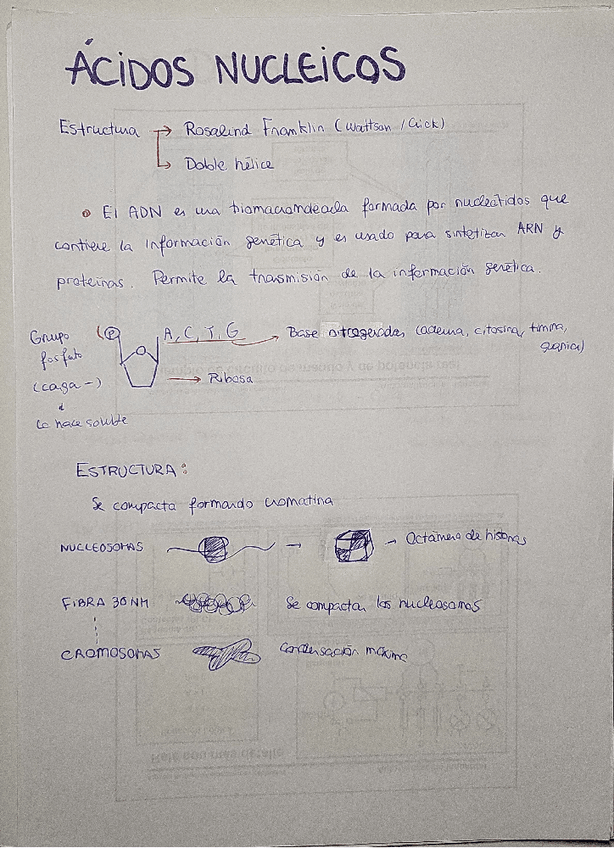 ÁCIDOS NUCLEICOS
Estructura → Rosalind Franklin (Wattson / Crick)
↳ Doble hélice
• El ADN es una biomacromolécula formada por nucleótidos que
contiene la información genética y es usado para sintetizar ARN y
proteínas. Permite la transmisión de la información genética.
Grupo fosfato (carga -)
lo hace soluble
P
A, C, T, G → Base nitrogenadas (adenina, citosina, timina, guanina)
→ Ribosa
ESTRUCTURA:
Se compacta formando cromatina
NUCLEOSOMAS → → Octámero de histonas
FIBRA 30 NM Se compactan los nucleosomas
CROMOSOMAS Condensación máxima